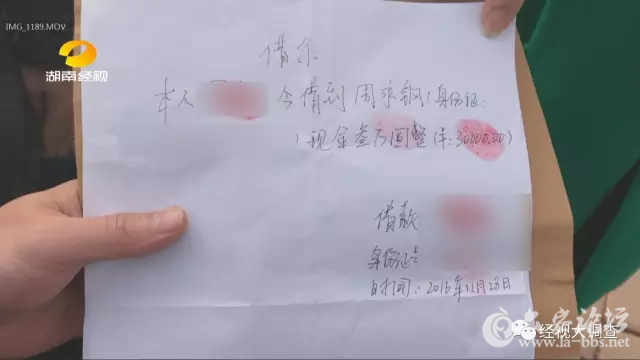 IMG_1189.MOV
湖南经视
借条
本人 今借到周 (身份证:
)现金叁万圆整(¥:30000.00)
借款
身份证:
时间:2016年11月28日
经视大调查
www.la-bbs.net